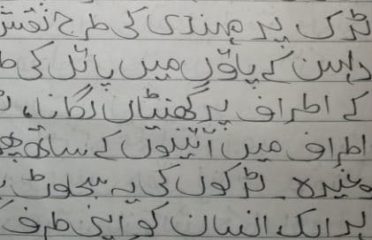 ٹرک پر مہندی کی طرح نقش
دلہن کے پاؤں میں پائل کی
کے اطراف پر گھنٹیاں لگانا،
اطراف میں آئینوں کے ساتھ
وغیرہ ٹرکوں کی یہ سجاوٹ
ہر ایک انسان کو اپنی طرف